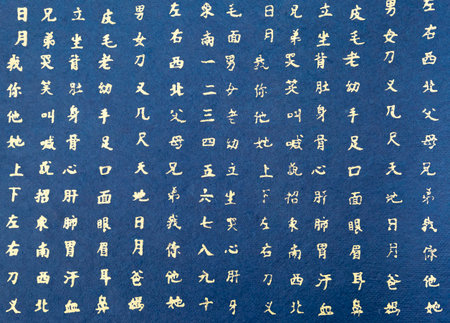 左右西北父母兄弟我你他她
男女刀义几尺天地日月爸媽
皮毛老幼手足口面眼眉耳鼻
立坐背肚身骨心肝肺胃汗血
兄弟哭笑叫喊説招東南西北
日月我你他她上下左右刀义
毛面男女老幼立坐哭心肝牙
東南一二三四五六七八九十
左右西北父母兄弟我你他她
男女刀义几尺天地日月爸媽
皮毛老幼手足口面眼眉耳鼻
立坐背肚身骨心肝肺胃汗血
兄弟哭笑叫喊説招東南西北
日月我你他她上下左右刀义